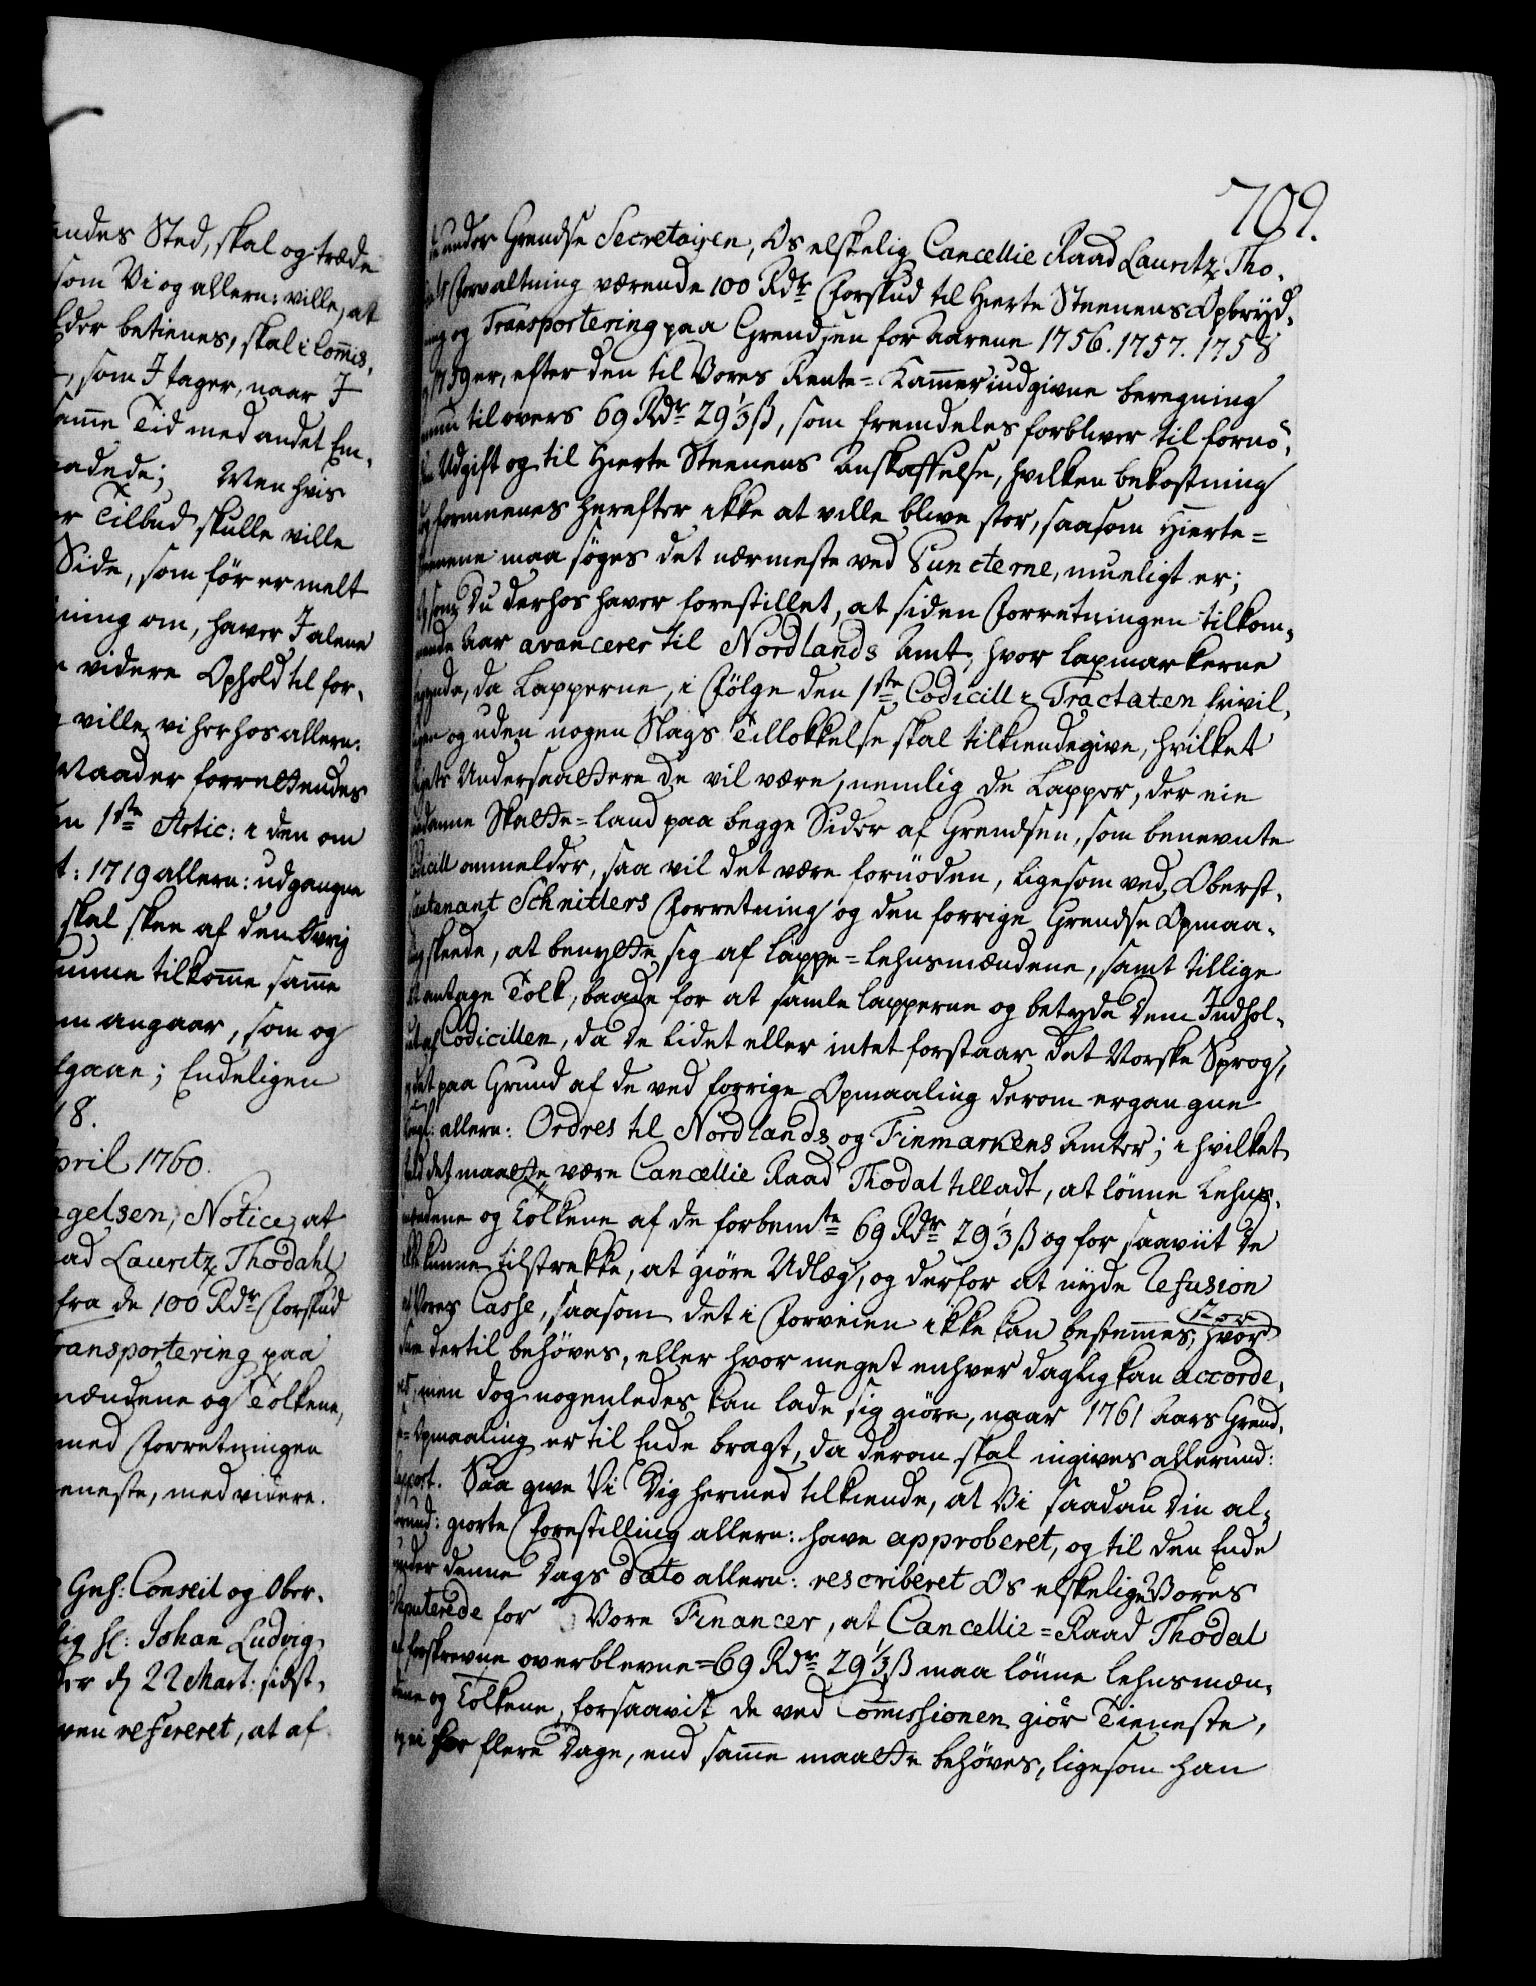 andes Sted, skal og træde
som Vi og allern: ville, at
lder betienes, skal i Com̄is,
, som I tager, naar I
sam̄e Tid med andet Em-
Men hvis
er Tilbud skulle ville
Side, som før er melt
ning om, haver I alene
videre Ophold til for-
ville vi herhos allern:
Maader forrettendes
1ste Artic: i den om
t: 1719 allern: udgangne
skal skee af den Övrig
kunne tilkom̄e sam̄e
angaar, som og
gaae; Endeligen
18.
pril 1760.
gelsen, Notice, at
aad Lauritz Thodahl
fra de 100 Rdr Forskud
ransportering paa
mændene og Tolkene,
med Forretningen
eneste, med videre.
Geh: Conseil og Ober-
lig H: Johan Ludvig
d 22 Mart: sidst-
ven refereret, at af
709.
under Grendse Secretairen, Os elskelig Cancellie Raad Lauritz Tho-
Forvaltning værende 100 Rdr Forskud til Hierte Steenens Opbryd-
ning og Transportering paa Grendsen for Aarene 1756. 1757. 1758
1759 er, efter den til Vores Rente-Kam̄er indgivne beregning
til overs 69 Rdr 29⅓ ß, som fremdeles forbliver til fornö-
Udgift og til Hierte Steenens Anskaffelse, hvilken bekostning
formeenes herefter ikke at ville blive stor, saasom Hierte-
steenene maa søges det nærmeste ved Puncterne, mueligt er;
som Du derhos haver forestillet, at siden Forretningen tilkom-
mende Aar avancerer til Nordlands Amt, hvor Lapmarkerne
begynde, da Lapperne, i Følge den 1ste Codicill i Tractaten frivil-
ligen og uden nogen Slags Tillokkelse skal tilkiendegive, hvilket
Riges Undersaattere de vil være, nemlig de Lapper, der eie
Skatte-land paa begge Sider af Grendsen, som benevnte
Codicill ommelder, saa vil det være fornöden, ligesom ved Oberst-
Lieutenant Schnitlers Forretning og den forrige Grendse Opmaa-
ling skeede, at benytte sig af Lappe-Lehnsmændene, samt tillige
at antage Tolk, baade for at samle Lapperne og betyde dem Indhol-
det af Codicillen, da de lidet eller intet forstaar det Norske Sprog,
det paa Grund af de ved forrige Opmaaling derom ergangne
Kongl: allern: Ordres til Nordlands og Finmarkens Amter; i hvilket
fald det maatte være Cancellie Raad Thodal tilladt, at lönne Lehns-
mændene og Tolkene af de forbemte 69 Rdr 29⅓ ß og for saaviit de
ikke kunne tilstrekke, at giöre Udlæg, og derfor at nyde Refusion
af Vores Casse, saasom det i Forveien ikke kan bestem̄es, hvor
dertil behöves, eller hvor meget enhver daglig kan accorde-
res, men dog nogenledes kan lade sig giöre, naar 1761 Aars Grend-
se-Opmaaling er til Ende bragt, da derom skal ingives allerund:
Rapport. Saa give Vi Dig hermed tilkiende, at Vi saadan Din al-
lerund: giorte Forestilling allern: have approberet, og til den Ende
under denne Dags Dato allern: rescriberet Os elskelige Vores
Deputerede for Vore Financer, at Cancellie-Raad Thodal
af forskrevne overblevne 69 Rdr 29⅓ ß maa lönne Lehnsmæn-
dene og Tolkene, forsaavit de ved Com̄issionen giör Tieneste,
og ei for flere Dage, end sam̄e maatte behöves, ligesom han